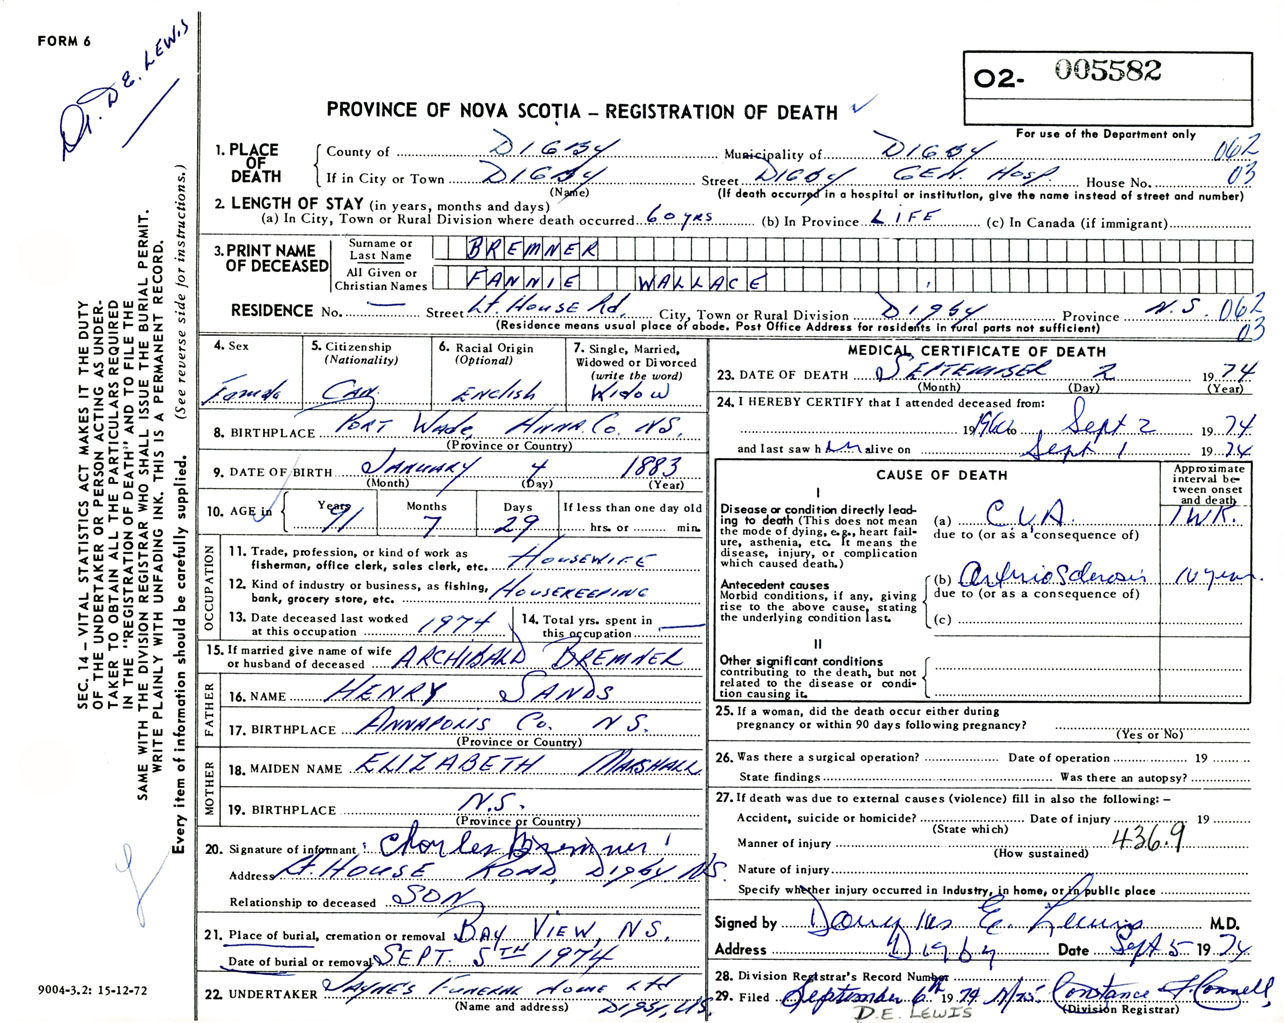 FORM 6
Dr. D E. LEWIS
O2- 005582
PROVINCE OF NOVA SCOTIA – REGISTRATION OF DEATH ✓
For use of the Department only
1. PLACE OF DEATH
County of DIGBY Municipality of DIGBY 062
If in City or Town DIGBY Street DIGBY GEN. HOSP House No. 03
(Name) (If death occurred in a hospital or institution, give the name instead of street and number)
2. LENGTH OF STAY (in years, months and days)
(a) In City, Town or Rural Division where death occurred 60 yrs (b) In Province LIFE (c) In Canada (if immigrant)
3. PRINT NAME OF DECEASED
Surname or Last Name BREMNER
All Given or Christian Names FANNIE WALLACE
RESIDENCE No. — Street Lt. House Rd. City, Town or Rural Division Digby Province N.S. 062
(Residence means usual place of abode. Post Office Address for residents in rural parts not sufficient) 03
4. Sex Female
5. Citizenship (Nationality) Can
6. Racial Origin (Optional) English
7. Single, Married, Widowed or Divorced (write the word) Widow
8. BIRTHPLACE Port Wade, Anna. Co. N.S.
(Province or Country)
9. DATE OF BIRTH January 4 1883
(Month) (Day) (Year)
10. AGE in Years 91 Months 7 Days 29 If less than one day old hrs. or min.
OCCUPATION
11. Trade, profession, or kind of work as fisherman, office clerk, sales clerk, etc. HOUSEWIFE
12. Kind of industry or business, as fishing, bank, grocery store, etc. HOUSEKEEPING
13. Date deceased last worked at this occupation 1974
14. Total yrs. spent in this occupation —
15. If married give name of wife or husband of deceased ARCHIBALD BREMNER
FATHER
16. NAME HENRY SANDS
17. BIRTHPLACE ANNAPOLIS Co. N.S.
(Province or Country)
MOTHER
18. MAIDEN NAME ELIZABETH MARSHALL
19. BIRTHPLACE N.S.
(Province or Country)
20. Signature of informant Charles Bremner
Address Lt. HOUSE ROAD, DIGBY. N.S.
Relationship to deceased SON
21. Place of burial, cremation or removal BAY VIEW, N.S.
Date of burial or removal SEPT. 5TH 1974
22. UNDERTAKER JAYNE'S FUNERAL HOME LTD
(Name and address) DIGBY, N.S.
MEDICAL CERTIFICATE OF DEATH
23. DATE OF DEATH SEPTEMBER 2 1974
(Month) (Day) (Year)
24. I HEREBY CERTIFY that I attended deceased from:
to Sept 2 1974
and last saw h alive on Sept 1 1974
CAUSE OF DEATH
Approximate interval between onset and death
I
Disease or condition directly leading to death (This does not mean the mode of dying, e.g., heart failure, asthenia, etc. It means the disease, injury, or complication which caused death.)
(a) C.V.A. 1 WK.
due to (or as a consequence of)
Antecedent causes
Morbid conditions, if any, giving rise to the above cause, stating the underlying condition last.
(b) Arteriosclerosis 10 years.
due to (or as a consequence of)
(c)
II
Other significant conditions contributing to the death, but not related to the disease or condition causing it.
25. If a woman, did the death occur either during pregnancy or within 90 days following pregnancy?
(Yes or No)
26. Was there a surgical operation? Date of operation 19
State findings Was there an autopsy?
27. If death was due to external causes (violence) fill in also the following: –
Accident, suicide or homicide? Date of injury 19
(State which) 436.9
Manner of injury
(How sustained)
Nature of injury
Specify whether injury occurred in industry, in home, or in public place
Signed by Douglas E. Lewis M.D.
Address Digby Date Sept 5 1974
28. Division Registrar's Record Number
29. Filed September 6th 1974 Constance F. Connell
D.E. LEWIS (Division Registrar)
SEC. 14 – VITAL STATISTICS ACT MAKES IT THE DUTY
OF THE UNDERTAKER OR PERSON ACTING AS UNDER-
TAKER TO OBTAIN ALL THE PARTICULARS REQUIRED
IN THE "REGISTRATION OF DEATH" AND TO FILE THE
SAME WITH THE DIVISION REGISTRAR WHO SHALL ISSUE THE BURIAL PERMIT.
WRITE PLAINLY WITH UNFADING INK. THIS IS A PERMANENT RECORD.
Every item of information should be carefully supplied. (See reverse side for instructions.)
9004-3.2: 15-12-72